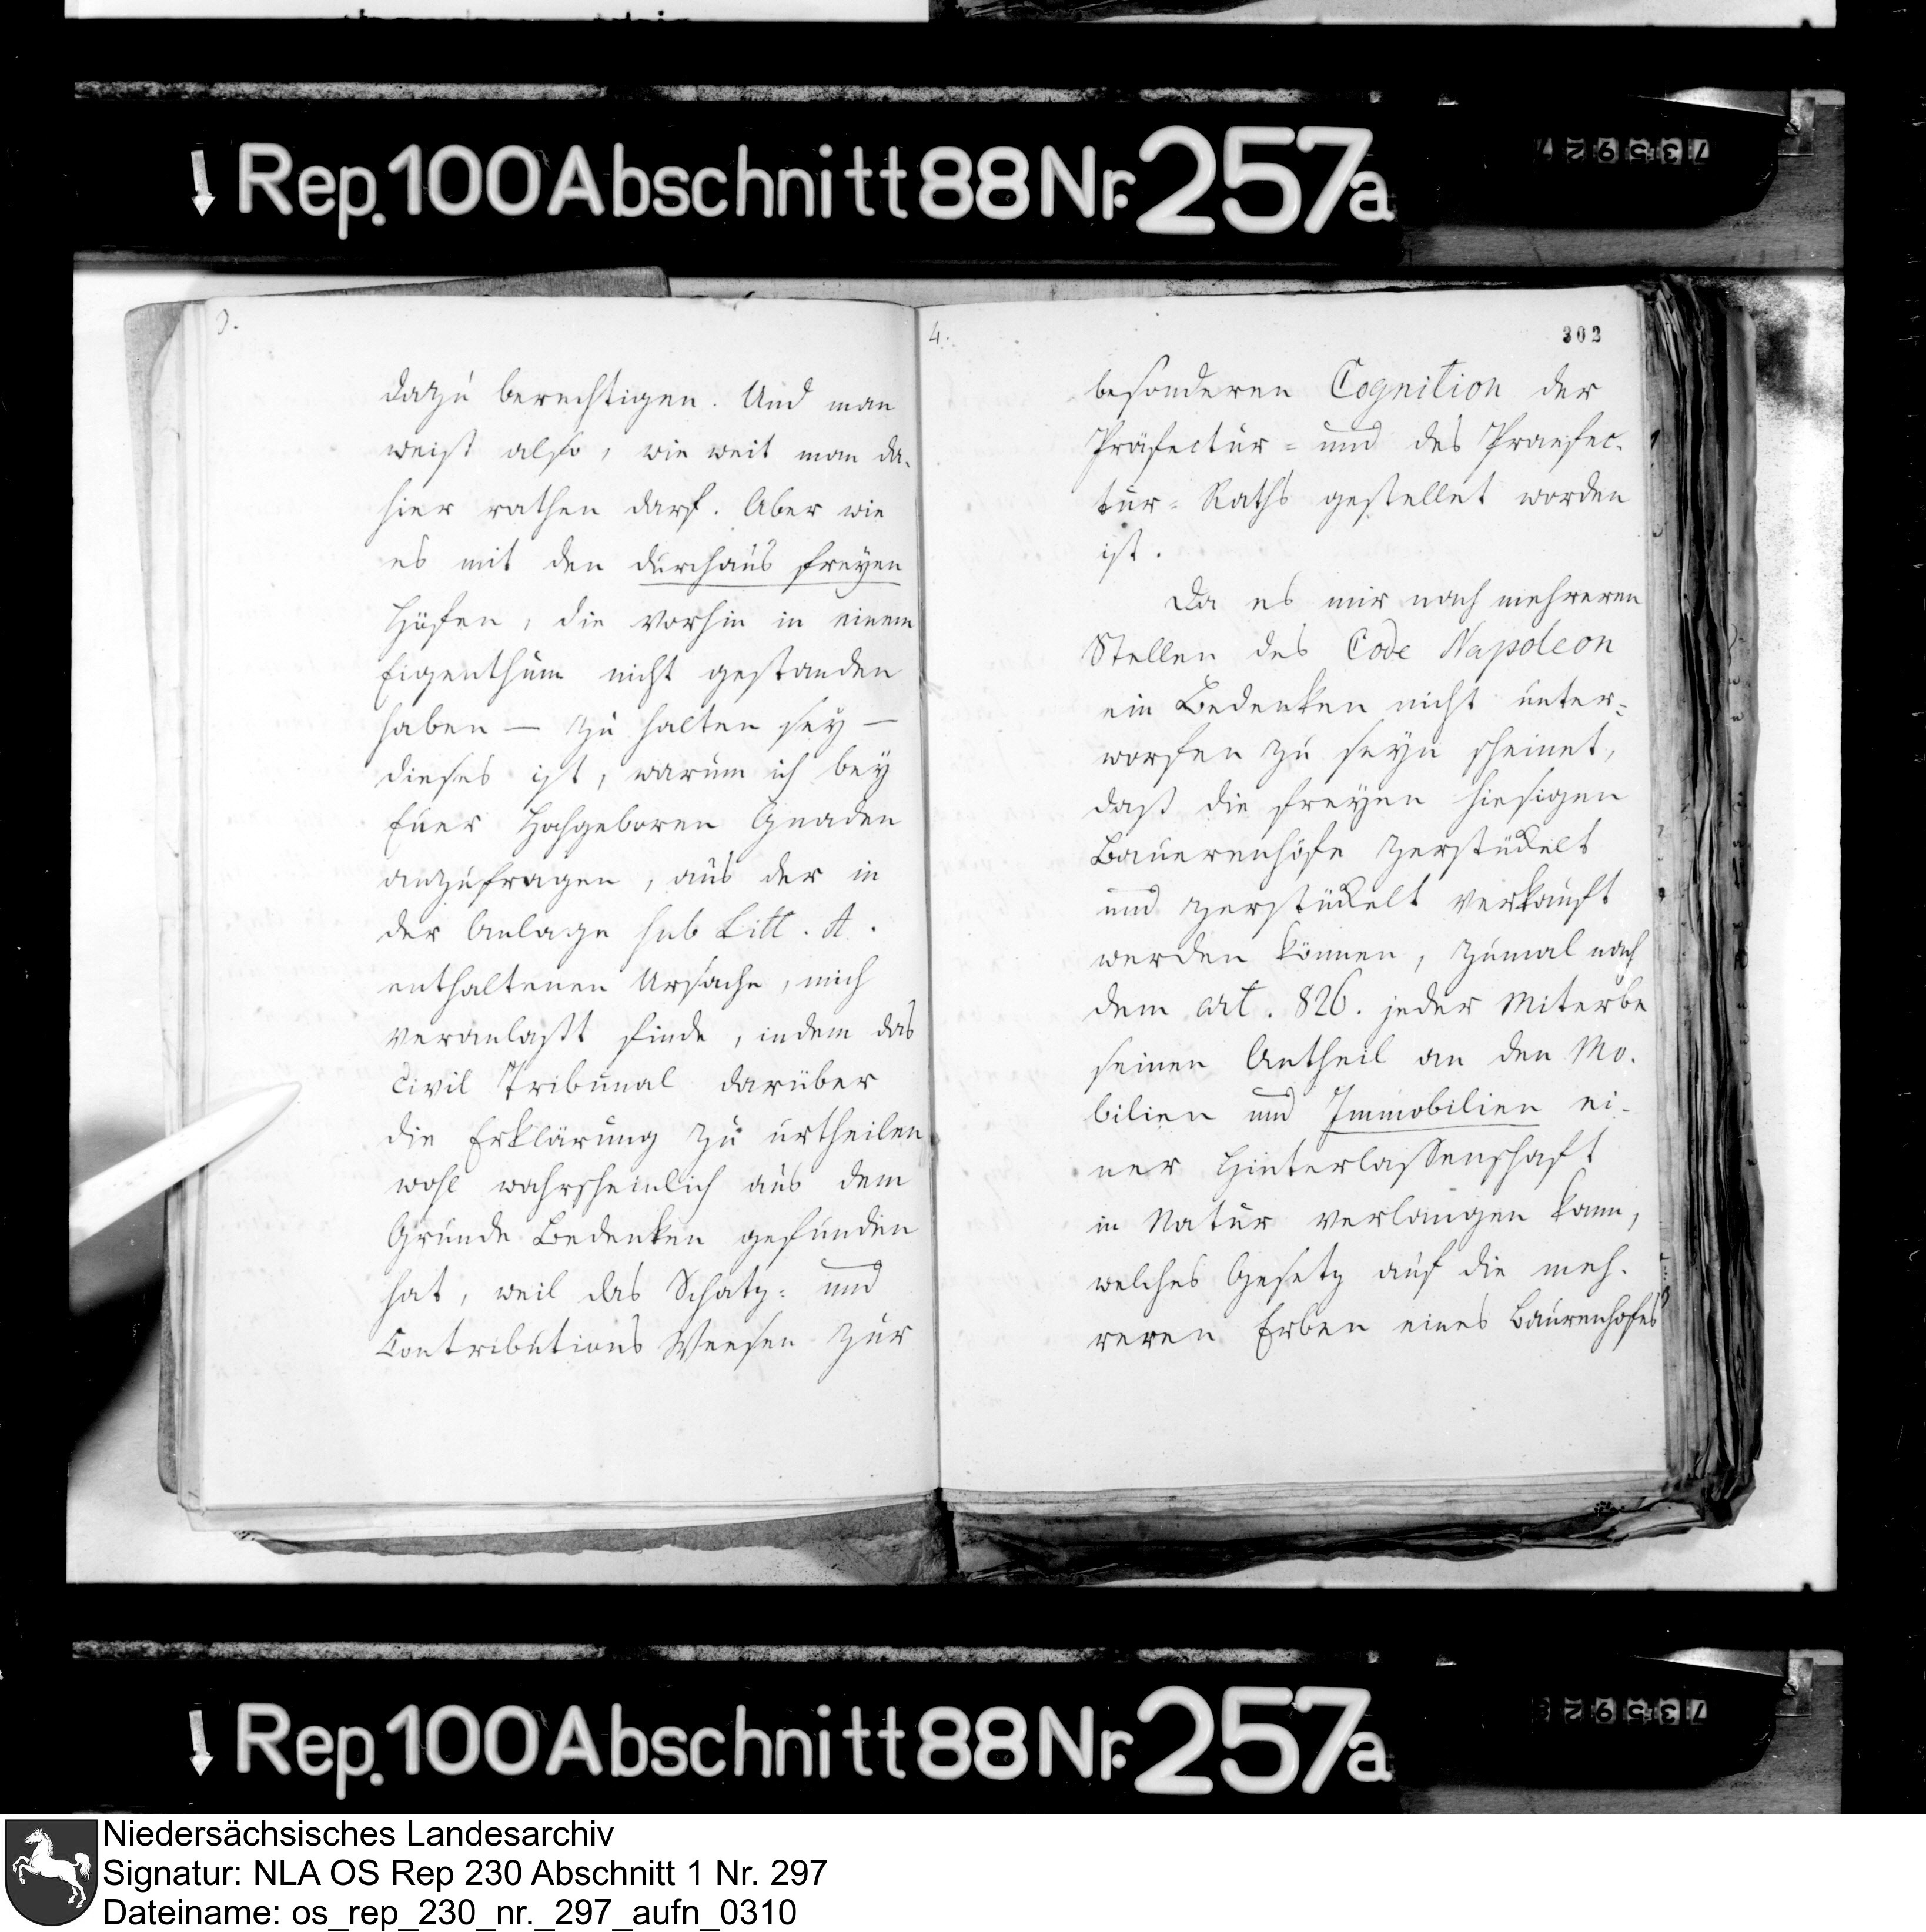 Rep. 100 Abschnitt 88 Nr. 257a
735927
3.
dazu berechtigen. Und man
weist also, wie weit man da-
hier rathen darf. Aber wie
es mit den durchaus freyen
Höfen, die vorhin in einem
Eigenthum nicht gestanden
haben — zu halten sey —
dieses ist, warum ich bey
Euer Hochgeboren Gnaden
anzufragen, aus der in
der Anlage sub Litt. A.
enthaltenen Ursache, mich
veranlaßt finde, indem das
Civil Tribunal darüber
die Erklärung zu urtheilen
wohl wahrscheinlich aus dem
Grunde Bedenken gefunden
hat, weil das Schatz- und
Contributions Weesen zur
4.
302
besonderen Cognition der
Präfectur- und des Praefec-
tur-Raths gestellet worden
ist.
Da es mir nach mehreren
Stellen des Code Napoleon
ein Bedenken nicht unter-
worfen zu seyn scheinet,
dast die freyen hiesigen
Bauerenhöfe zerstückelt
und zerstückelt verkauft
werden können, zumal nach
dem art. 826. jeder Miterbe
seinen Antheil an den Mo-
bilien und Immobilien ei-
ner Hinterlassenschaft
in Natur verlangen kann,
welches Gesetz auf die meh-
reren Erben eines Baurenhofes
Rep. 100 Abschnitt 88 Nr. 257a
Niedersächsisches Landesarchiv
Signatur: NLA OS Rep 230 Abschnitt 1 Nr. 297
Dateiname: os_rep_230_nr._297_aufn_0310